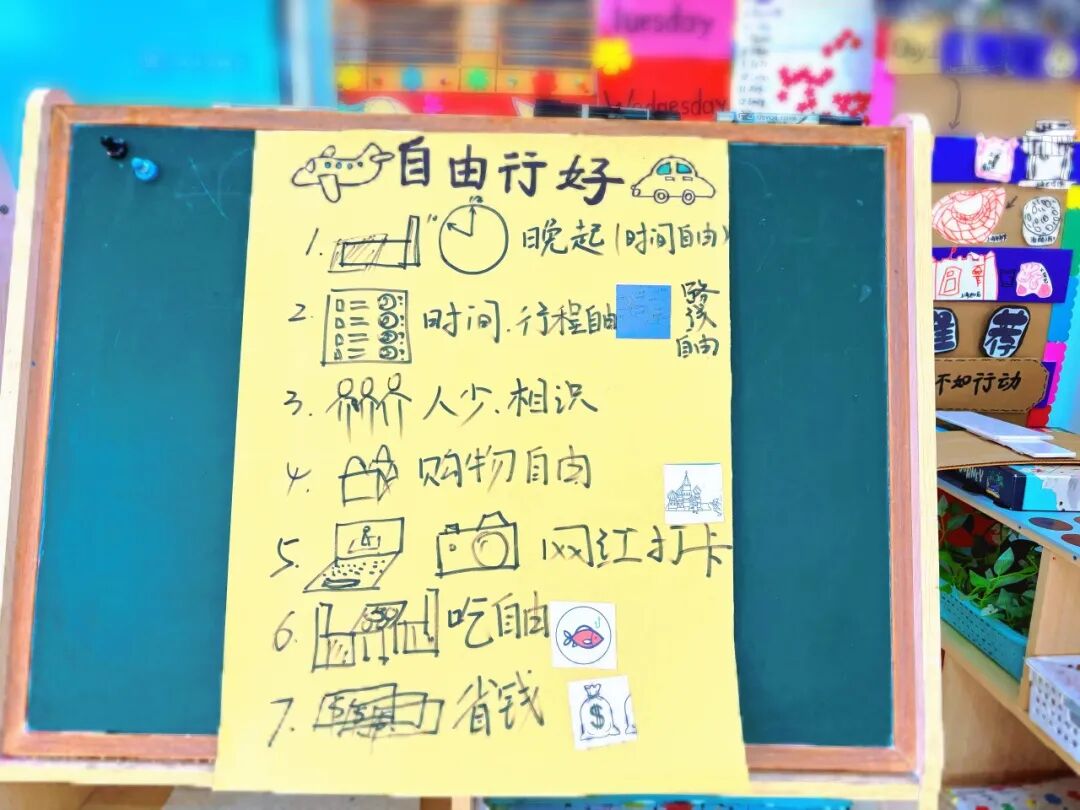 Tuesday
Wednesday
自由行好
1. 晚起(时间自由)
2. 时间、行程自由 路线自由
3. 人少、相识
4. 购物自由
5. 网红打卡
6. 吃自由
7. 省钱
$
荐
不如行动